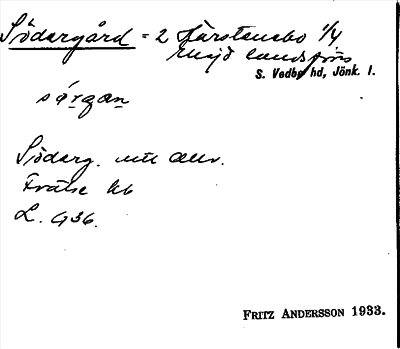 Södergård = 2 Härstenabo 1/4
S. Vedbo hd, Jönk. l.
sö̀rgan
Söderg. utt Allm.
Frälse hb
L. 936.
FRITZ ANDERSSON 1933.